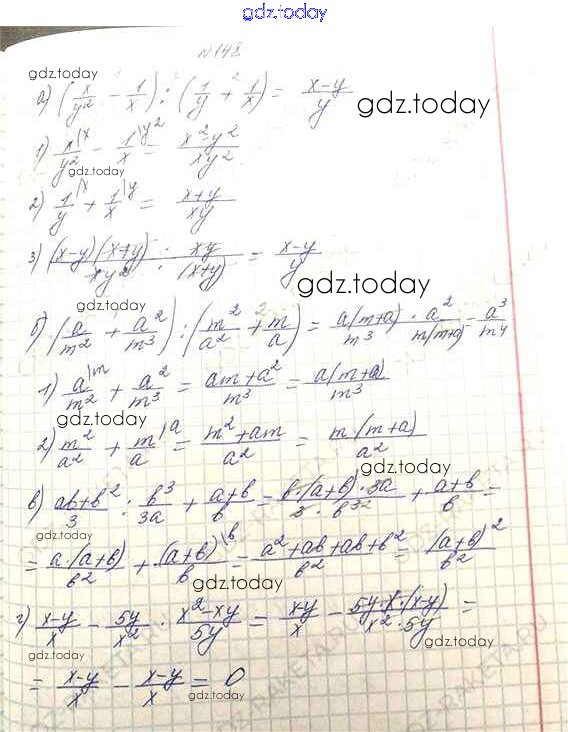 gdz.today
№ 148
gdz.today
а) (x/y² - 1/x) : (1/y + 1/x) = (x-y)/y gdz.today
1) x/y² |x - 1/x |y² = (x²-y²)/(xy²)
gdz.today
2) 1/y |x + 1/x |y = (x+y)/(xy)
3) (x-y)(x+y)/(xy²) · xy/(x+y) = (x-y)/y
gdz.today gdz.today
б) (a/m² + a²/m³) : (m²/a² + m/a) = a(m+a)/m³ · a²/(m(m+a)) = a³/m⁴
1) a/m² |m + a²/m³ = (am+a²)/m³ = a(m+a)/m³
gdz.today
2) m²/a² + m/a |a = (m²+am)/a² = m·(m+a)/a²
gdz.today
в) (ab+b²)/3 : b³/(3a) + (a+b)/b = b·(a+b)·3a/(3·b³) + (a+b)/b =
gdz.today
= a·(a+b)/b² + (a+b)/b |b = (a²+ab+ab+b²)/b² = (a+b)²/b²
gdz.today
г) (x-y)/x - 5y/x² · (x²-xy)/(5y) = (x-y)/x - 5y·x·(x-y)/(x²·5y) =
gdz.today gdz.today
= (x-y)/x - (x-y)/x = 0
gdz.today